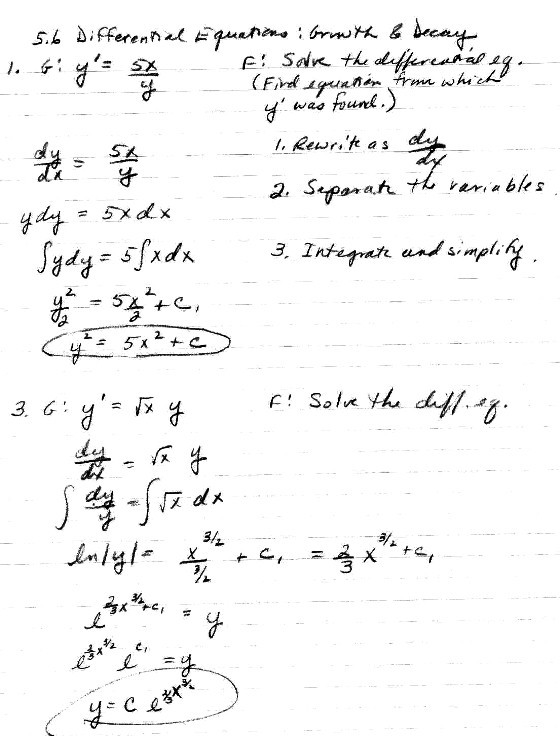 5.6 Differential Equations: Growth & Decay
1. G: y' = 5x/y
F: Solve the differential eq.
(Find equation from which
y' was found.)
dy/dx = 5x/y
1. Rewrite as dy/dx
2. Separate the variables.
ydy = 5xdx
∫ydy = 5∫xdx
3. Integrate and simplify.
y²/2 = 5x²/2 + C₁
y² = 5x² + C
3. G: y' = √x y
F: Solve the diff. eq.
dy/dx = √x y
∫ dy/y = ∫√x dx
ln|y| = x^(3/2)/(3/2) + C₁ = 2/3 x^(3/2) + C₁
e^(2/3 x^(3/2) + C₁) = y
e^(2/3 x^(3/2)) e^(C₁) = y
y = C e^(2/3 x^(3/2))